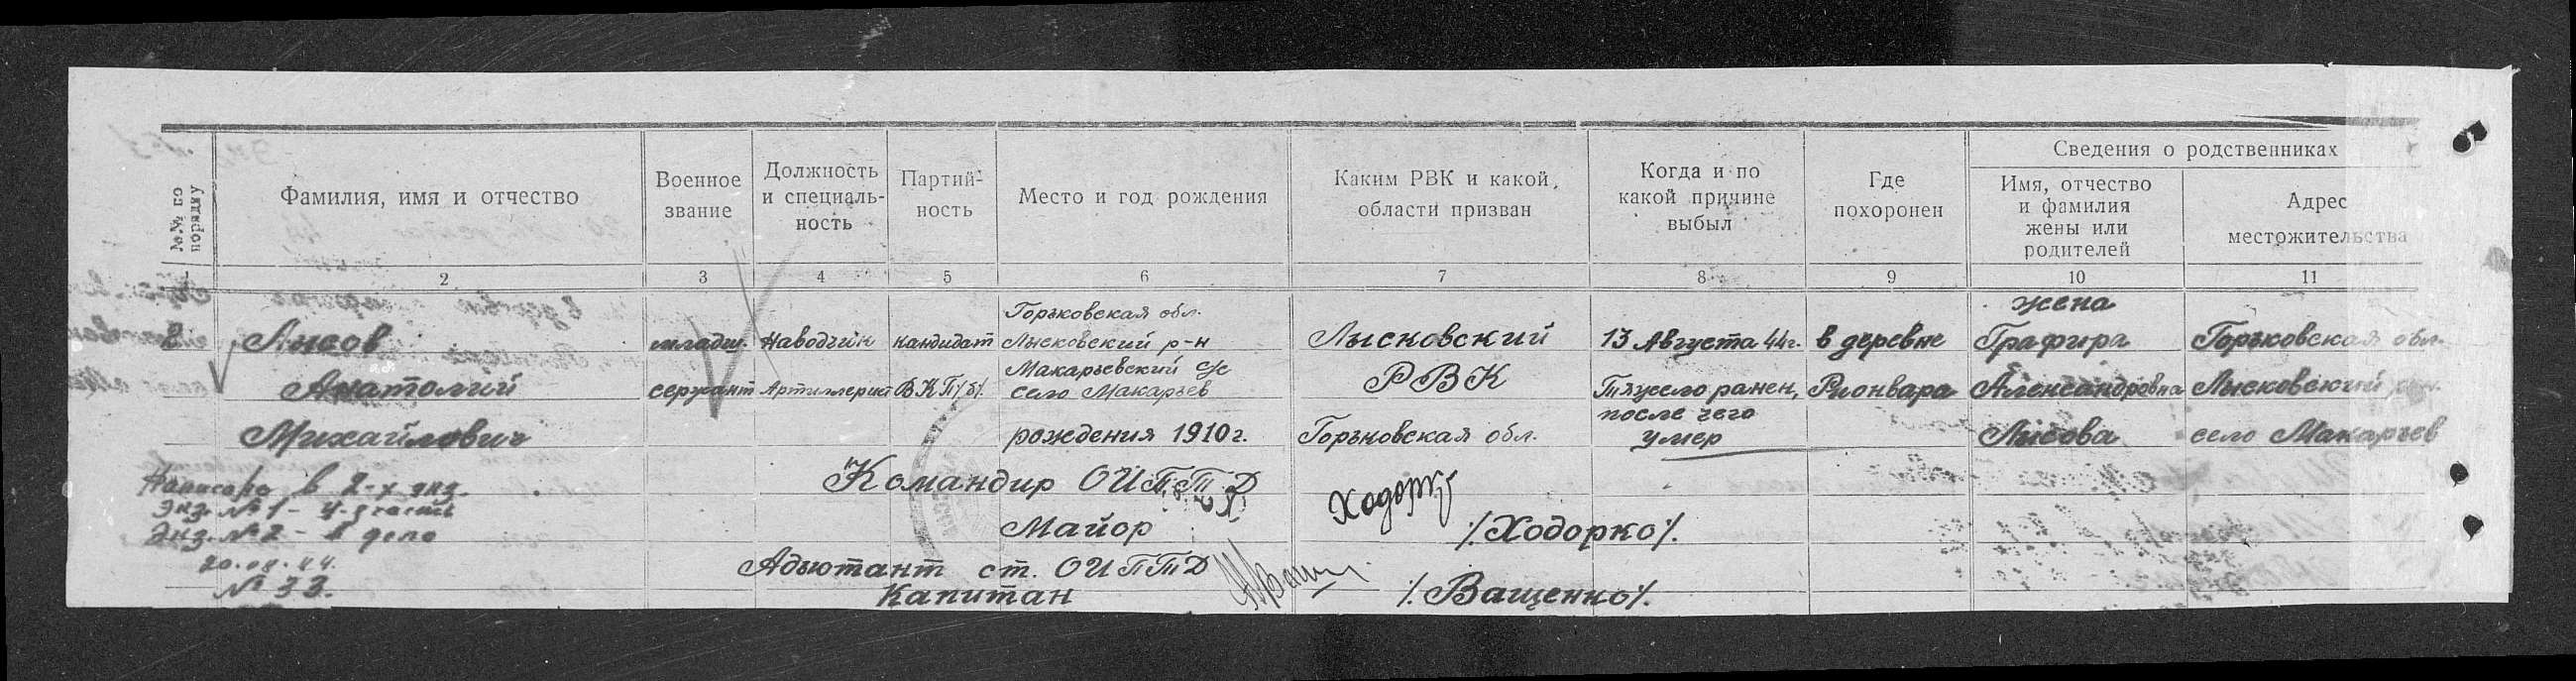 №№ по порядку
Фамилия, имя и отчество
Военное звание
Должность и специаль-ность
Партий-ность
Место и год рождения
Каким РВК и какой области призван
Когда и по какой причине выбыл
Где похоронен
Сведения о родственниках
Имя, отчество и фамилия жены или родителей
Адрес местожительства
2 3 4 5 6 7 8 9 10 11
Горьковская обл. жена
2 Лысов младш. Наводчик кандидат Лысковский р-н Лысковский 13 Августа 44г. в деревне Графира Горьковская обл.
Макарьевский с/с
Анатолий сержант Артиллерист ВКП/б/. село Макарьев РВК Тяжело ранен, Рионвара Александровна Лысковский р-н.
после чего
Михайлович рождения 1910г. Горьковская обл. умер Лысова село Макарьев
Написано в 2-х экз.
Командир ОИПТД
Экз. №1 -
Экз. №2 - в дело
Майор Ходорко /Ходорко/.
20.08.44.
Адьютант ст. ОИПТД
№ 33.
Капитан /Ващенко/.